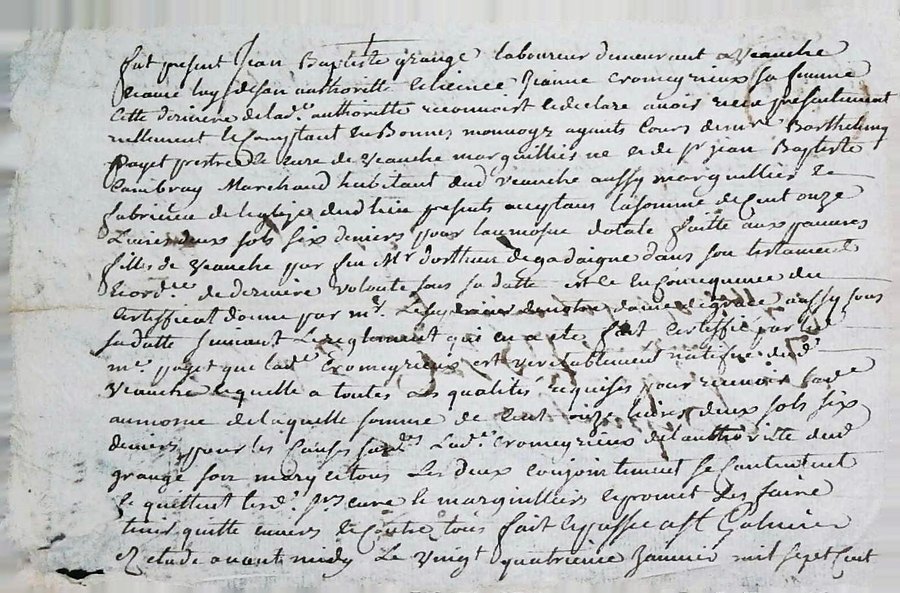 fut present Jean Baptiste grange laboureur demeurant a Veauche
lequel luy de son authoritté & licence Jeanne Cromeyrieux sa femme
cette derniere de lad.e authoritté reconnoist & declare avoir receu presentement
reellement & Comptant en Bonnes monnoye ayants Cours de m.re Barthelemy
payet prestre & cure de Veauche marguilliés ne & de Sr jean Baptiste
Cambray Marchand habitant dud Veauche aussy marguillier &
fabricien de l'eglize dud lieu presents acceptans la somme de Cent onze
Livres deux sols six deniers pour laumosne dotale faitte aux pauvres
filles de Veauche par feu Mr d'osthun de gadaigne dans son testament
& ord.ce de derniere volonté sous sa datte et ce en Consequence du
Certifficat donné par m.r de notre dame de grace aussy sous
sa datte suivant Le reglement qui en a ete fait Certiffié par led
m.re payet que lad.e Cromeyrieux est veritablement natifve dud.
Veauche & quelle a toutes Les qualités requises pour recevoir lad.e
aumosne de laquelle somme de Cent onze livres deux sols six
deniers pour les Causes susd.es Lad.e Cromeyrieux de l'authorité dud
grange son mary et tous Les deux conjointement se Contentent
& quittent lesd. srs curé & marguilliers & promet Les faire
tenir quitte envers & Contre tous fait & passé a St Galmier
Et etude avant midy Le Vingt quatrieme Janvier mil sept Cent